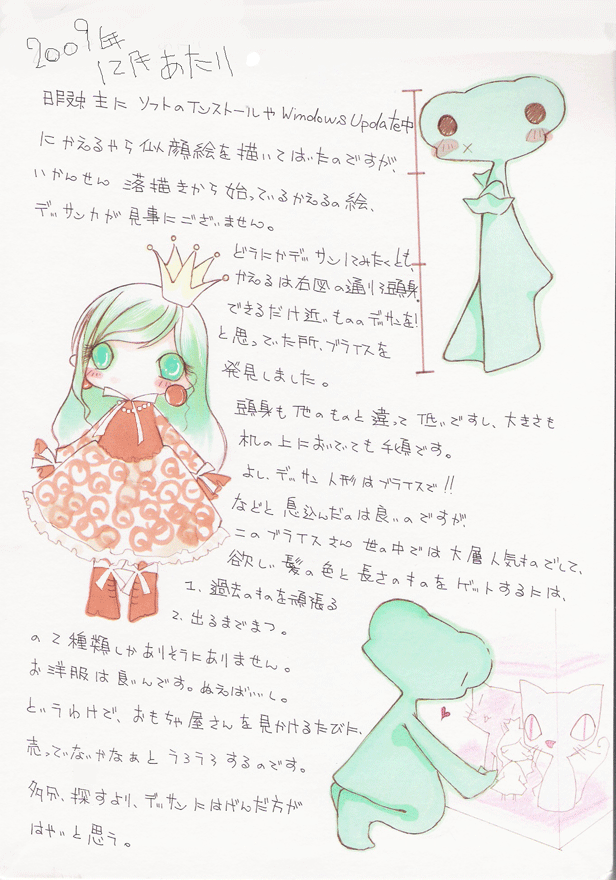 2009年
12月あたり
暇発 主に ソフトのインストールやWindows Update中
にかえるやら似顔絵を描いてはいたのですが、
いかんせん 落描きから始っているかえるの絵、
デッサン力が見事にございません。
どうにかデッサンしてみたくとも、
かえるは右図の通り3頭身
できるだけ近いもののデッサンを!
と思っていた所、ブライスを
発見しました。
頭身も他のものと違って低いですし、大きさも
机の上においでても手頃です。
よし、デッサン人形はブライスで!!
などと息込んだのは良いのですが、
このブライスさん世の中では大層人気ものでして、
欲しい髪の色と長さのものをゲットするには、
1. 過去のものを頑張る
2. 出るまでまつ。
の2種類しかありそうにありません。
お洋服は良いんです。ぬえばいいし。
というわけで、おもちゃ屋さんを見かけるたびに、
売ってないかなぁとうろうろするのです。
多分、探すより、デッサンにはげんだ方が
はやいと思う。